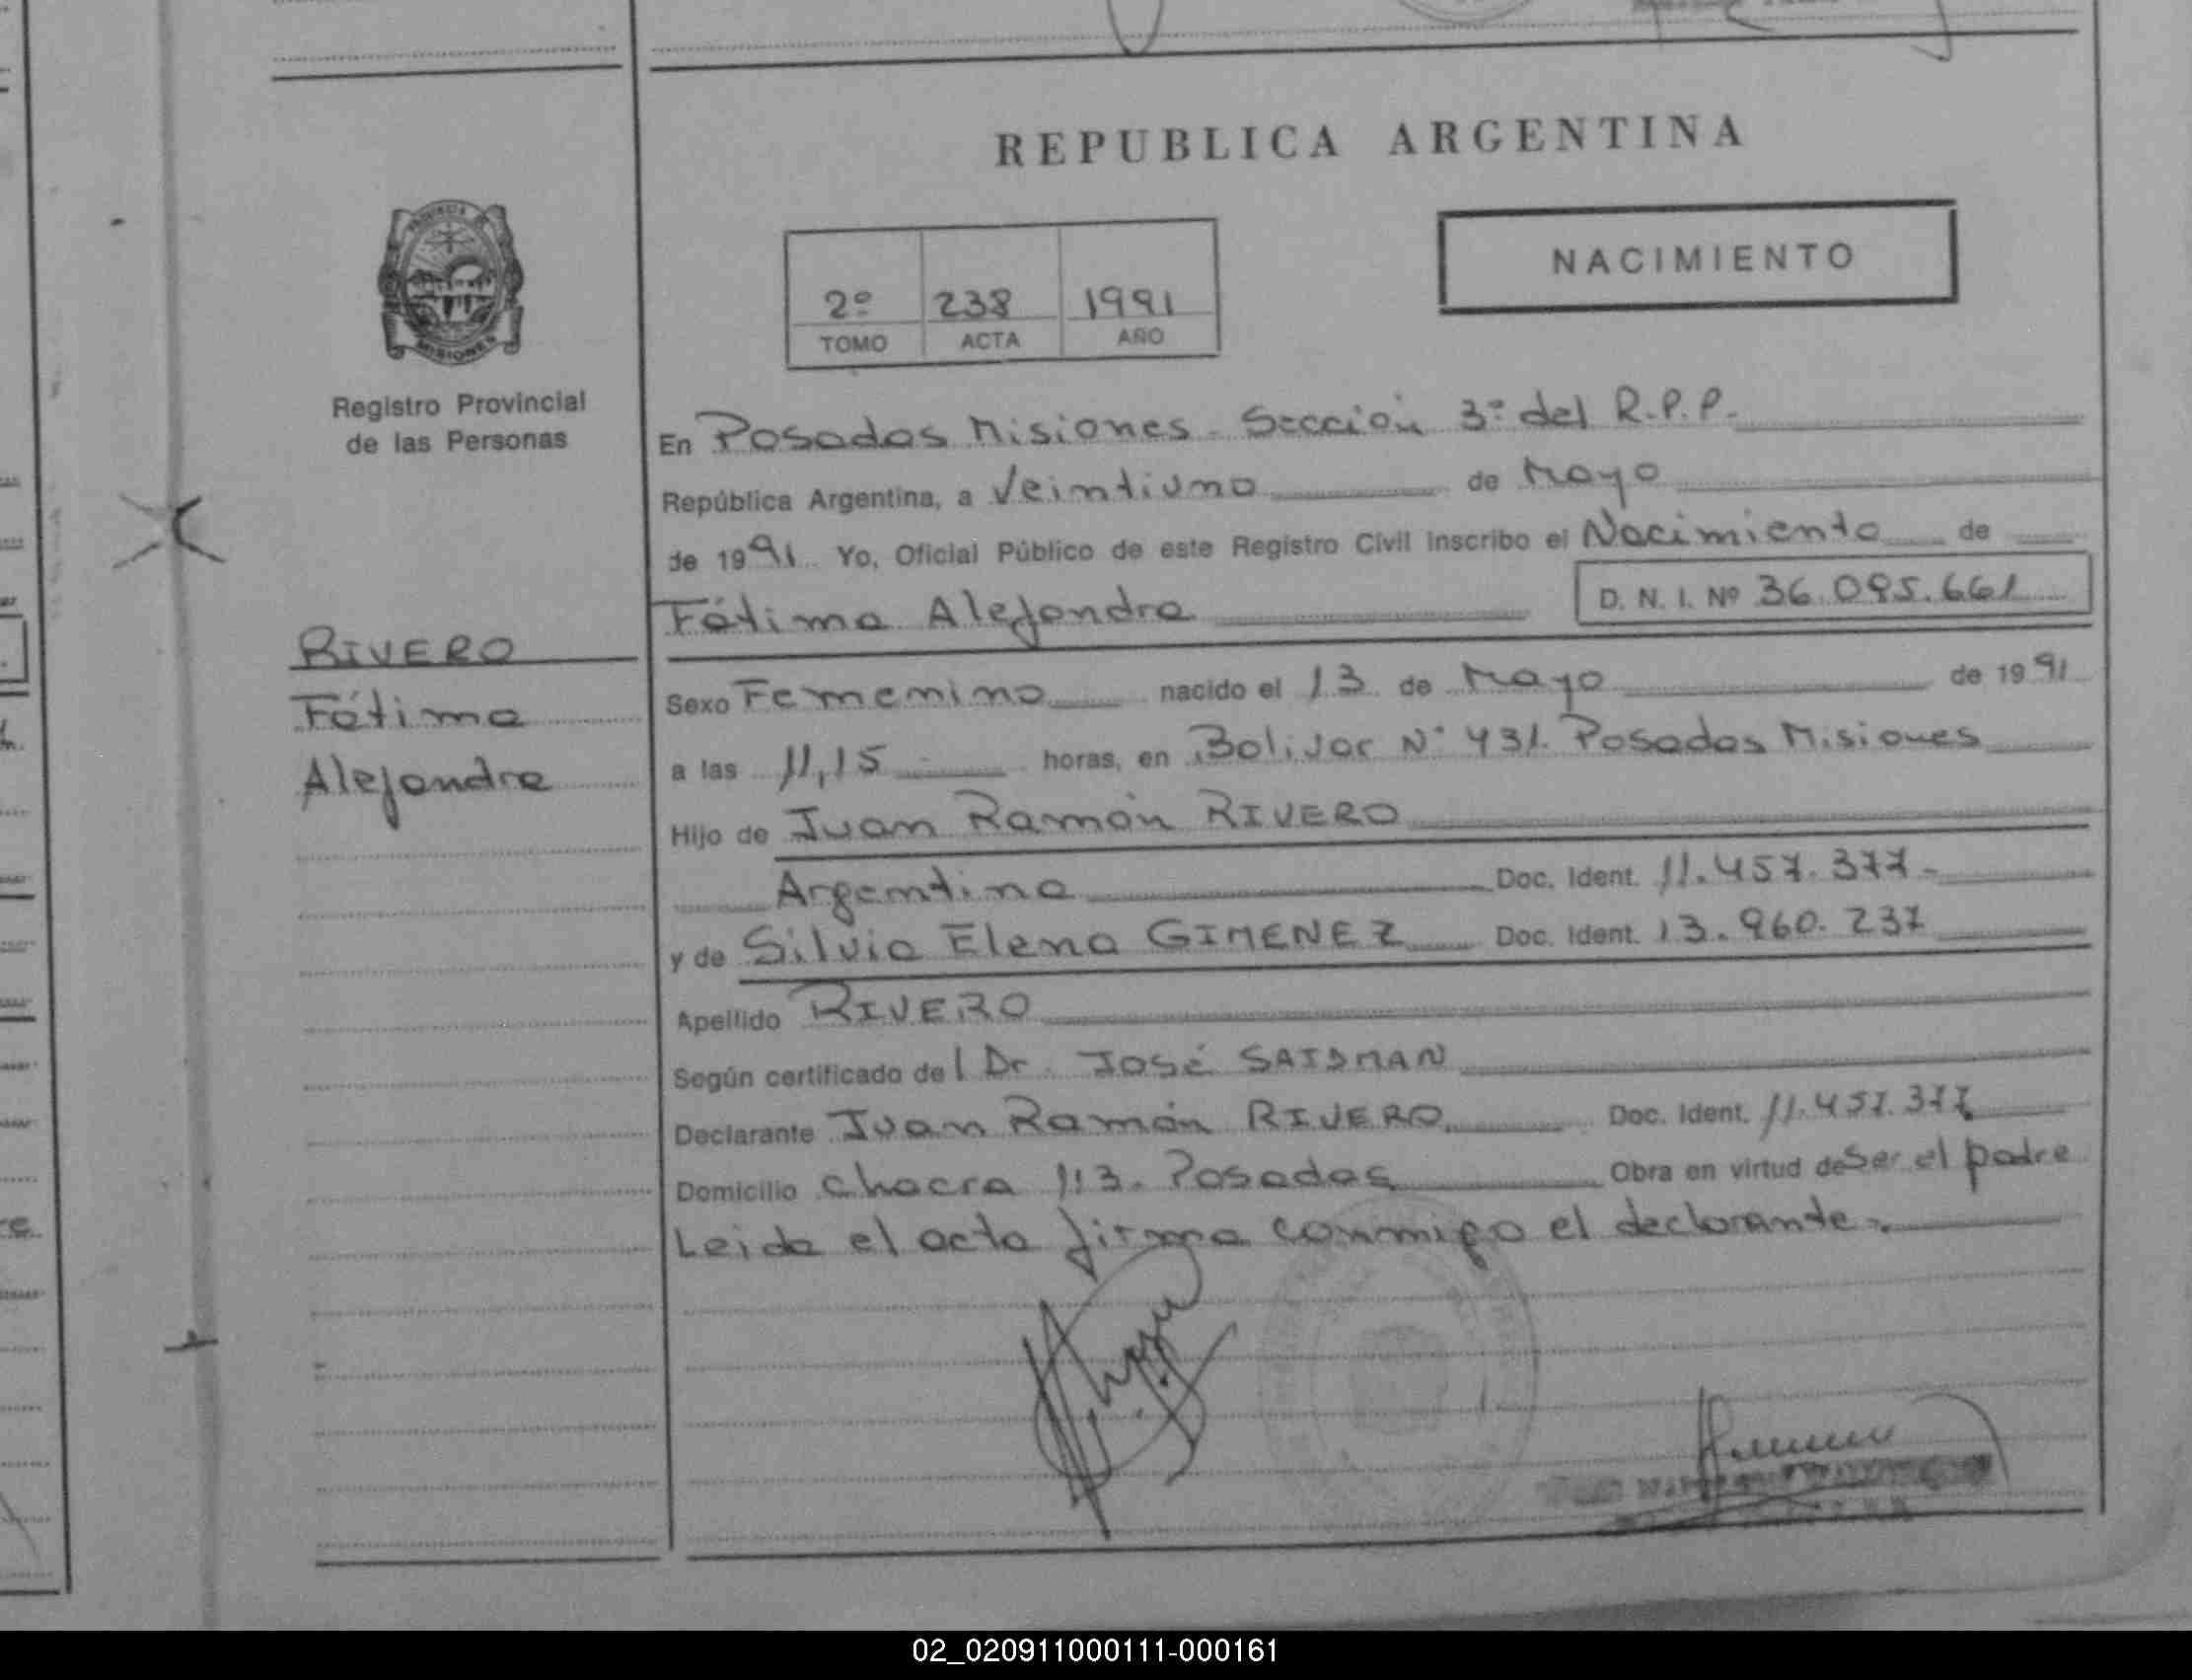 REPUBLICA ARGENTINA
PROVINCIA DE
MISIONES
Registro Provincial
de las Personas
NACIMIENTO
2º 238 1991
TOMO ACTA AÑO
En Posadas Misiones - Sección 3º del R.P.P.
República Argentina, a Veintiuno de Mayo
de 1991 Yo, Oficial Público de este Registro Civil inscribo el Nacimiento de
Fátima Alejandra D. N. I. Nº 36.095.661
RIVERO
Fátima
Alejandra
Sexo Femenino nacido el 13 de Mayo de 1991
a las 11,15 horas, en Bolivar Nº 431. Posadas Misiones
Hijo de Juan Ramón RIVERO
Argentino Doc. Ident. 11.457.377-
y de Silvia Elena GIMENEZ Doc. Ident. 13.960.237
Apellido RIVERO
Según certificado del Dr. José SAIDMAN
Declarante Juan Ramón RIVERO. Doc. Ident. 11.457.377
Domicilio chacra 113. Posadas Obra en virtud de Ser el padre
Leida el acta firma conmigo el declarante.
02_020911000111-000161